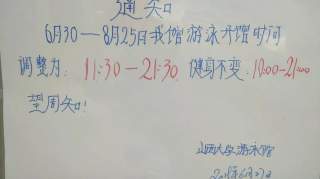 通知
6月30—8月25日我馆游泳开馆时间
调整为：11:30—21:30，健身不变：10:00—21:00
望周知！
山西大学游泳馆
6月27日